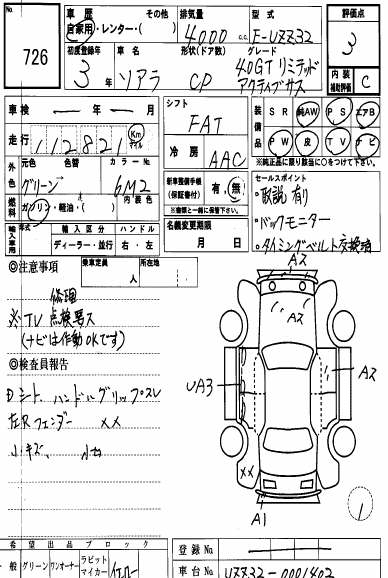 No.
726
車歴
自家用・レンタ・( )
その他
排気量
4000 c.c.
型式
E-UZZ32
評価点
3
初度登録年
3年
車名
ソアラ
形状(ドア数)
CP
グレード
4.0GTリミテッド
アクティブサス
内装
補助評価
C
車検 ― 年 ― 月
走行
112821
Km
マイル
シフト
FAT
冷房
AAC
装備品
SR 純AW PS エアB
PW 皮 TV ナビ
※純正品に限り該当に○をつけて下さい。
外色
元色
色替
カラーNo
グリーン→
6M2
燃料
ガソリン・軽油・( )
内装色
新車整備手帳
(保証書付)
有・無
※書類と一緒に保管下さい。
セールスポイント
・取説有り
・バックモニター
・タイミングベルト交換済
輸入車用
年式
輸入区分
ハンドル
ディーラー・並行
右・左
名義変更期限
月 日
◎注意事項
乗車定員
人
所在地
修理
※TV点検要ス
(ナビは作動OKです)
◎検査員報告
Dシート、ハンドルグリップスレ
左Rフェンダー ××
小キズ、小凹
A2
A2
UA3
A2
××
A1
希望出品ブロック
一般
グリーン
ワンオーナー
ラビット
マイカー
イエロー
登録No
車台No
UZZ32-0001402